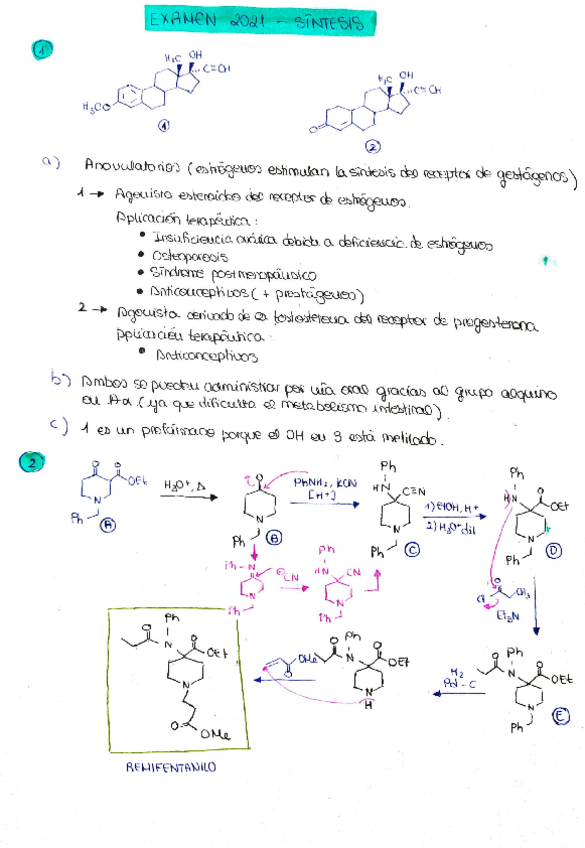 EXAMEN 2021 - SÍNTESIS
1
H₃C OH
C≡CH
H₃CO
1
H₃C OH
C≡CH
O
2
a) Anovulatorios (estrógenos estimulan la síntesis del receptor de gestágenos)
1 → Agonista esteroideo del receptor de estrógenos.
Aplicación terapéutica:
• Insuficiencia ovárica debida a deficiencia de estrógenos
• Osteoporosis
• Síndrome postmenopáusico
• Anticonceptivos (+ prostágenos)
2 → Agonista derivado de la testosterona del receptor de progesterona
Aplicación terapéutica:
• Anticonceptivos
b) Ambos se pueden administrar por vía oral gracias al grupo alquino
en 17α (ya que dificulta el metabolismo intestinal).
c) 1 es un profármaco porque el OH en 3 está metilado.
2
O O
OEt
N
Ph
A
H₃O⁺, Δ
O
N
Ph
B
PhNH₂, KCN
[H+]
Ph
HN C≡N
N
Ph
C
1) EtOH, H+
2) H₃O⁺ dil
Ph
HN O
OEt
N
Ph
D
Ph-N
⊖CN
N
Ph
Ph
HN CN
N
Ph
O
Cl CH₃
Et₃N
Ph
O N O
OEt
N
Ph
E
H₂
Pd-C
Ph
O N O
OEt
N
H
O
OMe
Ph
O N O
OEt
N
O
OMe
REMIFENTANILO